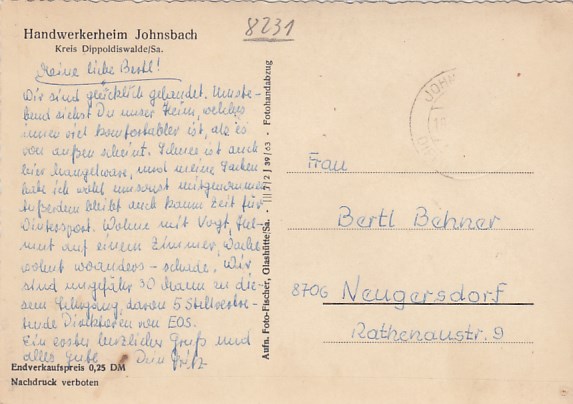 8231
Handwerkerheim Johnsbach
Kreis Dippoldiswalde/Sa.
Meine liebe Bertl!
Wir sind glücklich gelandet. Umste-
hend siehst Du unser Heim, welches
innen viel komfortabler ist, als es
von außen scheint. Schnee ist auch
hier Mangelware, und meine Sachen
habe ich wohl umsonst mitgenommen.
Außerdem bleibt auch kaum Zeit für
Wintersport. Wohne mit Vogt, Hel-
mut auf einem Zimmer,
wohnt woanders - schade. Wir
sind ungefähr 30 Mann zu die-
sem Lehrgang, davon 5 Stellvertre-
tende Direktoren von EOS.
Ein erster herzlicher Gruß und
alles Gute Dein Fritz
Endverkaufspreis 0,25 DM
Nachdruck verboten
Aufn. Foto-Fischer, Glashütte/Sa. · III 7/2 J 39/63 · Fotohandabzug
JOHN
Frau
Bertl Behner
8706 Neugersdorf
Rathenaustr. 9